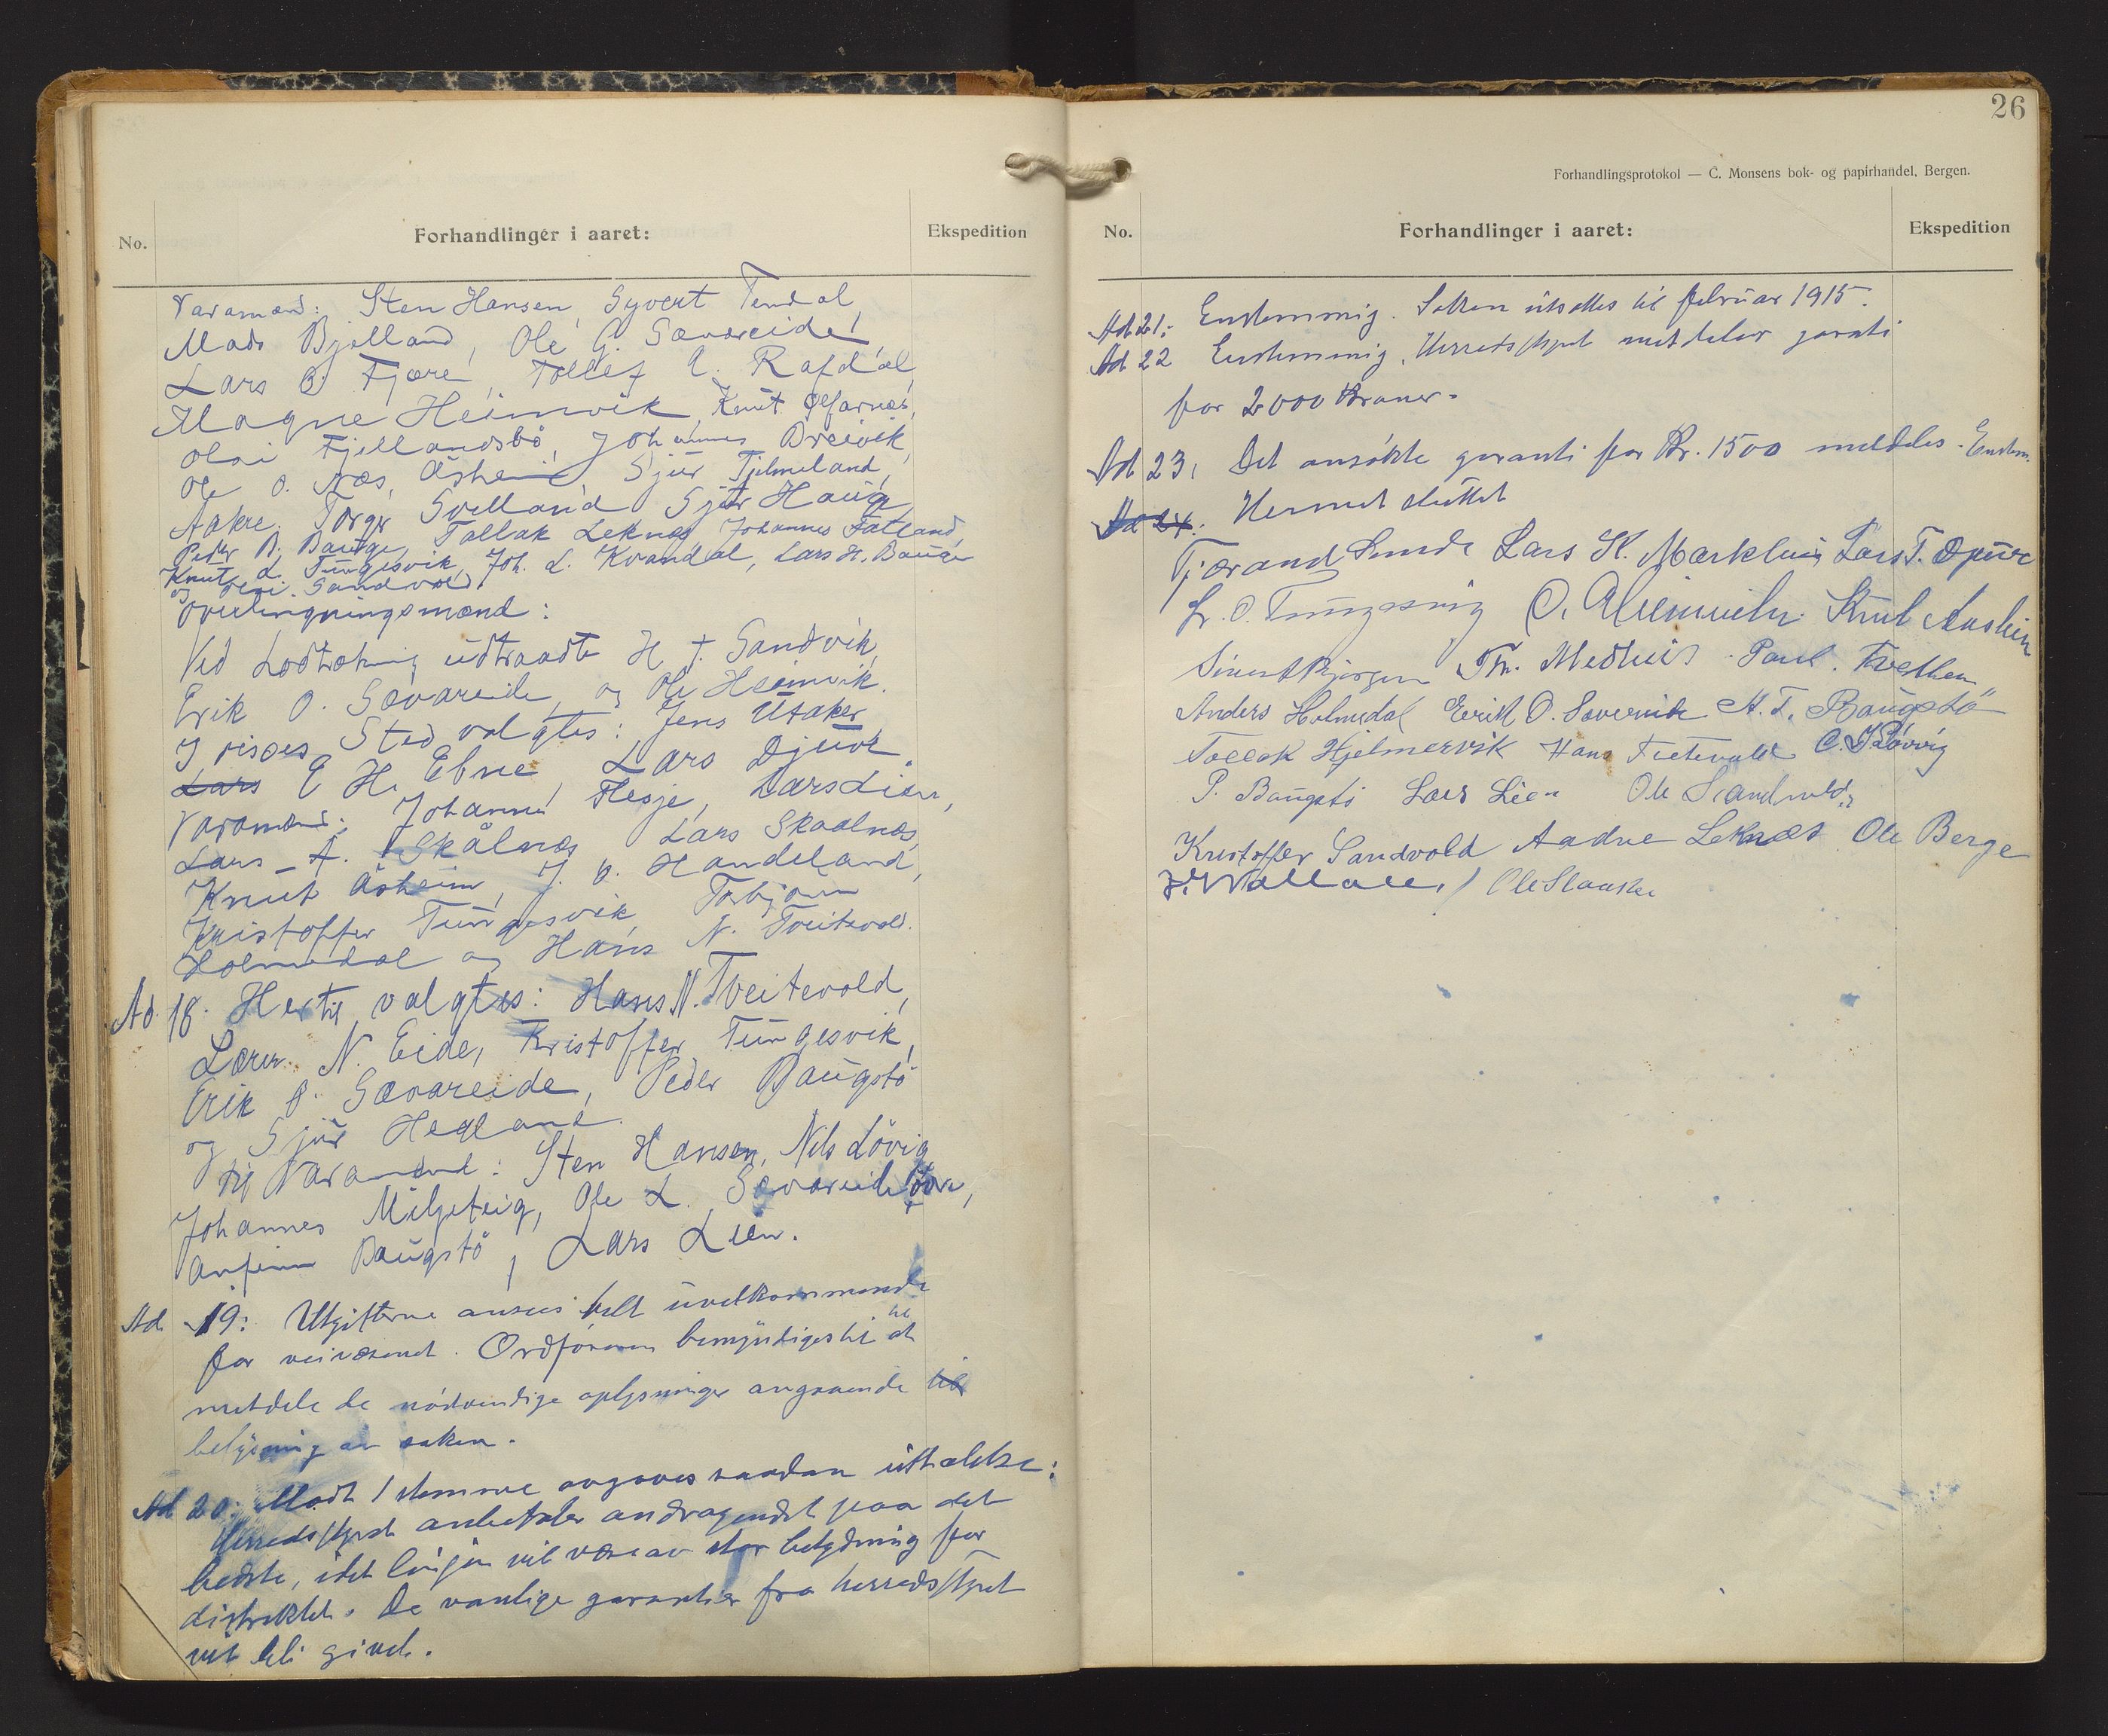 No.
Forhandlinger i aaret:
Ekspedition
Varamænd: Sten Hansen, Syvert Tendal,
Mads Bjelland, Ole G. Sævareide,
Lars O. Fjære, Tollef Rafdal,
Magne Heimvik, Knut
Olai Fjellandsbö, Johannes Breivik,
Ole O. Næs, Åsheim, Sjur Tjelmeland,
Aakre. Torger Svelland Sjur Haug
Peder B. Bauge, Tollak Leknes Johannes Fatland,
Knut L. Tungesvik, Joh. L. Kvandal, Lars H. Bauge
og Sandvold
Overligningsmænd:
Ved Lodtrækning udtraadte H. T. Sandvik,
Erik O. Sævareide, og Ole Heimvik.
I disses Sted valgtes: Jens Utaker
Lars E H. Ebne, Lars Djuve.
Varamænd: Johannes Flesje, Lars Lien,
Lars A. Skålnes, Lars Skaalnes,
Knut Åsheim, J. O. Handeland,
Kristoffer Tungesvik, Torbjörn
Holmedal og Hans N. Tveitevold.
Ad. 18. Hertil valgtes: Hans N. Tveitevold,
Lærer N. Eide, Kristoffer Tungesvik,
Erik O. Sævareide, Peder Baugstö
og Sjur Hegland.
til Varamænd: Sten Hansen, Nils Lövig
Johannes Miljeteig, Ole L. Sævareide,
Anfinn Baugstö, Lars Lien.
Ad. 19: Utgifterne ansees helt uvedkommende
for veivæsenet. Ordföreren bemyndiges til at
meddele de nödvendige oplysninger angaaende til
belysning av saken.
Ad 20: Modt 1 stemme avgaves saadan uttalelse:
Herredsstyret anbefaler andragendet paa det
bedste, idet linjen vil være av stor betydning for
distriktet. De vanlige garantier fra herredsstyret
vil bli givet.
26
Forhandlingsprotokol — C. Monsens bok- og papirhandel, Bergen.
No.
Forhandlinger i aaret:
Ekspedition
Ad 21: Enstemmig. Sakken utsættes til februar 1915.
Ad 22 Enstemmig. Herredsstyret meddeler garanti
for 2000 Kroner.
Ad 23, Det ansökte garanti for Kr. 1500 meddeles. Enstem.
Ad 24. Hermed sluttet
Tjærand Sunde Lars K. Markhus Lars T. Øpure
O. Heimvik Knut Aasheim
Th. Medhus Paul Tvethen
Anders Holmedal Eerik O. Severeide A. T. Baugstö
Tollak Hjelmervik Hans Tveitevold C. Lövvig
P. Baugstö Lars Lien Ole Sandvold
Kristoffer Sandvold Aadne Leknæs Ole Berge
Ole Slaake